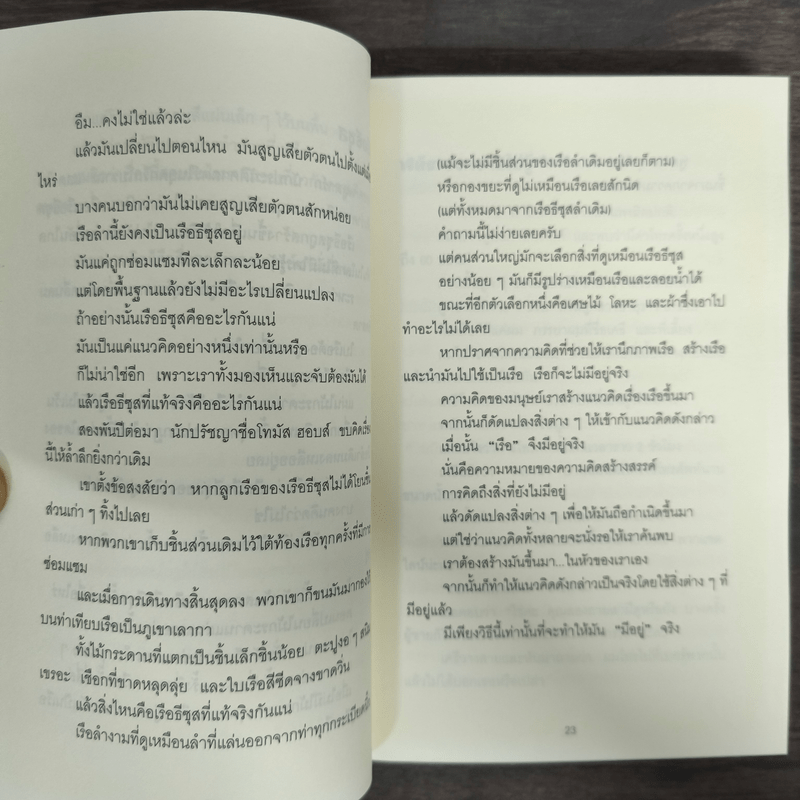 อืม...คงไม่ใช่แล้วล่ะ
แล้วมันเปลี่ยนไปตอนไหน มันสูญเสียตัวตนไปตั้งแต่
ไหร่
บางคนบอกว่ามันไม่เคยสูญเสียตัวตนสักหน่อย
เรือลำนี้ยังคงเป็นเรือธีซุสอยู่
มันแค่ถูกซ่อมแซมทีละเล็กละน้อย
แต่โดยพื้นฐานแล้วยังไม่มีอะไรเปลี่ยนแปลง
ถ้าอย่างนั้นเรือธีซุสคืออะไรกันแน่
มันเป็นแค่แนวคิดอย่างหนึ่งเท่านั้นหรือ
ก็ไม่น่าใช่อีก เพราะเราทั้งมองเห็นและจับต้องมันได้
แล้วเรือธีซุสที่แท้จริงคืออะไรกันแน่
สองพันปีต่อมา นักปรัชญาชื่อโทมัส ฮอบส์ ขบคิดเรื่อง
นี้ให้ล้ำลึกยิ่งกว่าเดิม
เขาตั้งข้อสงสัยว่า หากลูกเรือของเรือธีซุสไม่ได้โยนชิ้น
ส่วนเก่า ๆ ทิ้งไปเลย
หากพวกเขาเก็บชิ้นส่วนเดิมไว้ใต้ท้องเรือทุกครั้งที่มีการ
ซ่อมแซม
และเมื่อการเดินทางสิ้นสุดลง พวกเขาก็ขนมันมากองไว้
บนท่าเทียบเรือเป็นภูเขาเลากา
ทั้งไม้กระดานที่แตกเป็นชิ้นเล็กชิ้นน้อย ตะปูงอ ๆ
เขรอะ เชือกที่ขาดหลุดลุ่ย และใบเรือสีซีดจางขาดวิ่น
แล้วสิ่งไหนคือเรือธีซุสที่แท้จริงกันแน่
เรือลำงามที่ดูเหมือนลำที่แล่นออกจากท่าทุกกระเบียดนิ้ว
(แม้จะไม่มีชิ้นส่วนของเรือลำเดิมอยู่เลยก็ตาม)
หรือกองขยะที่ดูไม่เหมือนเรือเลยสักนิด
(แต่ทั้งหมดมาจากเรือธีซุสลำเดิม)
คำถามนี้ไม่ง่ายเลยครับ
แต่คนส่วนใหญ่มักจะเลือกสิ่งที่ดูเหมือนเรือธีซุส
อย่างน้อย ๆ มันก็มีรูปร่างเหมือนเรือและลอยน้ำได้
ขณะที่อีกตัวเลือกหนึ่งคือเศษไม้ โลหะ และผ้าซึ่งเอาไป
ทำอะไรไม่ได้เลย
หากปราศจากความคิดที่ช่วยให้เรานึกภาพเรือ สร้างเรือ
และนำมันไปใช้เป็นเรือ เรือก็จะไม่มีอยู่จริง
ความคิดของมนุษย์เราสร้างแนวคิดเรื่องเรือขึ้นมา
จากนั้นก็ดัดแปลงสิ่งต่าง ๆ ให้เข้ากับแนวคิดดังกล่าว
เมื่อนั้น “เรือ” จึงมีอยู่จริง
นั่นคือความหมายของความคิดสร้างสรรค์
การคิดถึงสิ่งที่ยังไม่มีอยู่
แล้วดัดแปลงสิ่งต่าง ๆ เพื่อให้มันถือกำเนิดขึ้นมา
แต่ใช่ว่าแนวคิดทั้งหลายจะนั่งรอให้เราค้นพบ
เราต้องสร้างมันขึ้นมา...ในหัวของเราเอง
จากนั้นก็ทำให้แนวคิดดังกล่าวเป็นจริงโดยใช้สิ่งต่าง ๆ ที่
มีอยู่แล้ว
มีเพียงวิธีนี้เท่านั้นที่จะทำให้มัน “มีอยู่” จริง
23